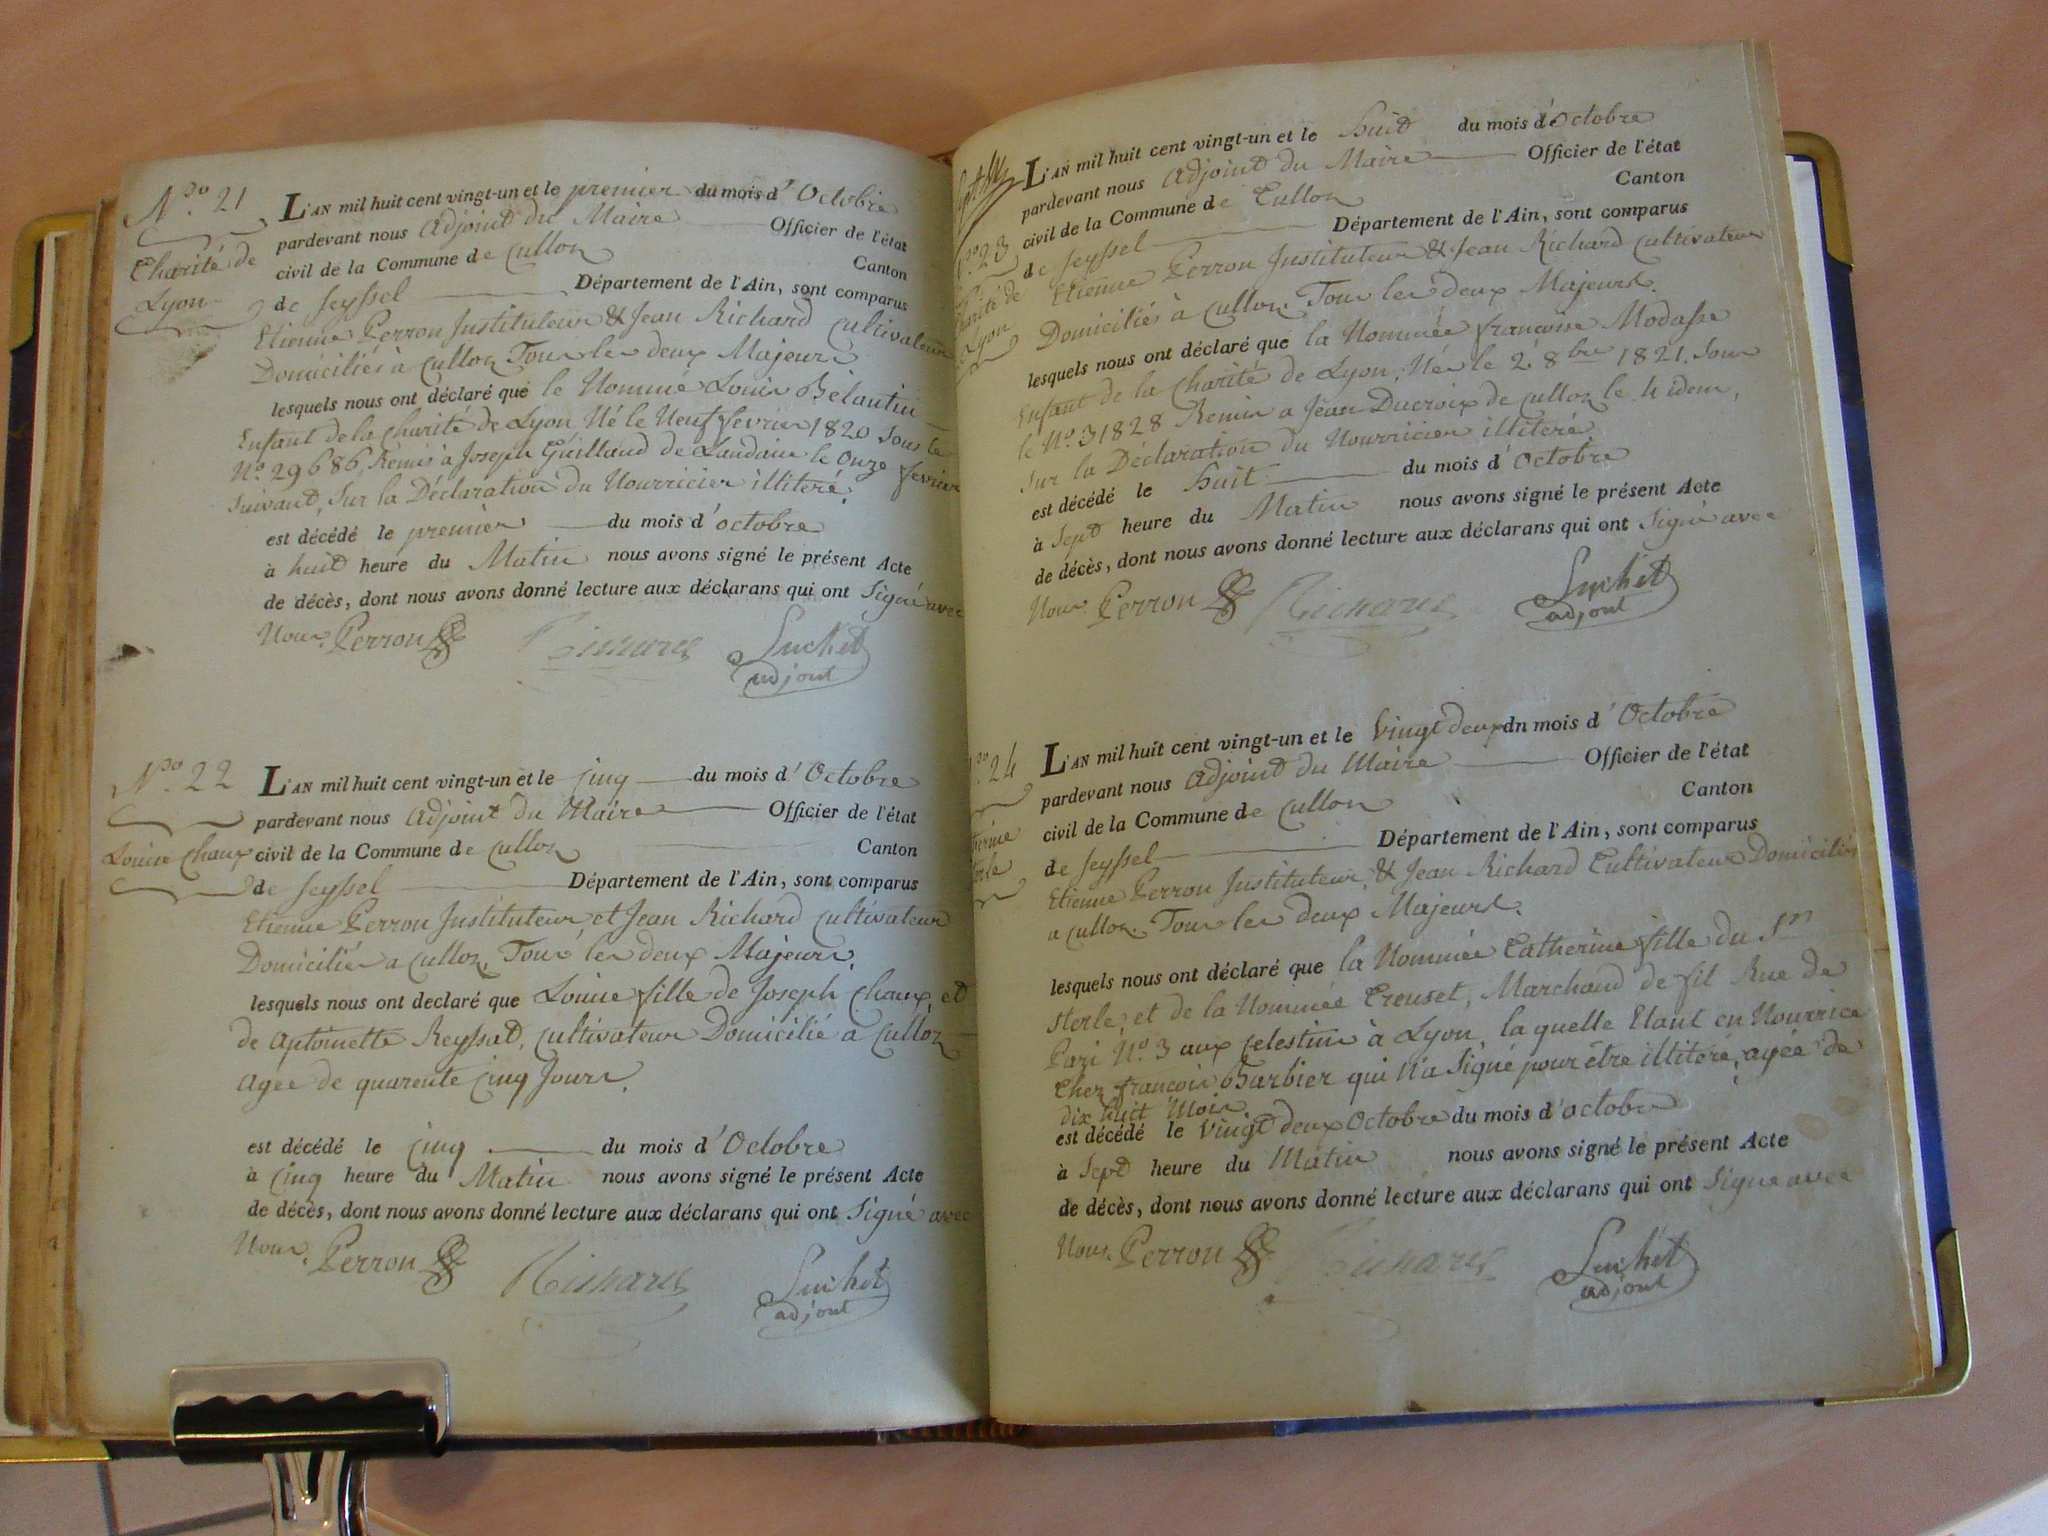 N.º 21
Charité de
Lyon
L'AN mil huit cent vingt-un et le premier du mois d'Octobre
pardevant nous Adjoint du Maire Officier de l'état
civil de la Commune de Culloz Canton
de Seyssel Département de l'Ain, sont comparus
Etienne Perron Instituteur & Jean Richard Cultivateur
Domiciliés à Culloz Tous les deux Majeurs
lesquels nous ont déclaré que le Nommé Louis Bélantin
Enfant de la Charité de Lyon Né le Neuf fevrier 1820 sous le
N.º 29686, Remis à Joseph Guilland de Landaize le Onze fevrier
suivant, Sur la Déclaration du Nourricier illiteré.
est décédé le premier du mois d'octobre
à huit heure du Matin nous avons signé le présent Acte
de décès, dont nous avons donné lecture aux déclarans qui ont Signé avec
Nous. Perron Richard Suchet
adjoint
N.º 22
Louise Chaux
L'AN mil huit cent vingt-un et le cinq du mois d'Octobre
pardevant nous Adjoint du Maire Officier de l'état
civil de la Commune de Culloz Canton
de Seyssel Département de l'Ain, sont comparus
Etienne Perron Instituteur et Jean Richard Cultivateur
Domiciliés a Culloz, Tous les deux Majeurs,
lesquels nous ont declaré que Louise fille de Joseph Chaux, et
de Antoinette Reyssat, Cultivateur Domicilié à Culloz
Agée de quarente cinq Jours.
est décédé le cinq du mois d'Octobre
à Cinq heure du Matin nous avons signé le présent Acte
de décès, dont nous avons donné lecture aux déclarans qui ont Signé avec
Nous. Perron Richard Suchet
adjoint
N.º 23
Charité de
Lyon
L'AN mil huit cent vingt-un et le huit du mois d'Octobre
pardevant nous Adjoint du Maire Officier de l'état
civil de la Commune de Culloz Canton
de Seyssel Département de l'Ain, sont comparus
Etienne Perron Instituteur & Jean Richard Cultivateur
Domiciliés à Culloz Tous les deux Majeurs.
lesquels nous ont déclaré que la Nommée françoise Modasse
Enfant de la Charité de Lyon, Née le 2 8bre 1821. sous
le N.º 31828 Remis a Jean Ducroix de Culloz le 4 idem,
Sur la Déclaration du Nourricier illiteré
est décédé le huit du mois d'Octobre
à Sept heure du Matin nous avons signé le présent Acte
de décès, dont nous avons donné lecture aux déclarans qui ont Signé avec
Nous. Perron Richard Suchet
adjoint
N.º 24
L'AN mil huit cent vingt-un et le Vingt deux dn mois d'Octobre
pardevant nous Adjoint du Maire Officier de l'état
civil de la Commune de Culloz Canton
de Seyssel Département de l'Ain, sont comparus
Etienne Perron Instituteur, & Jean Richard Cultivateur Domiciliés
a Culloz. Tous les deux Majeurs.
lesquels nous ont déclaré que la Nommée Catherine fille du Sr
Sterle, et de la Nommée Creuset, Marchand de fil Rue de
Pazi N.º 3 aux Celestins à Lyon, la quelle Etant en Nourrice
Chez françois Barbier qui n'a Signé pour être illiteré, agée de
dix huit Mois.
est décédé le Vingt deux Octobre du mois d'octobre
à Sept heure du Matin nous avons signé le présent Acte
de décès, dont nous avons donné lecture aux déclarans qui ont Signé avec
Nous. Perron Richard Suchet
adjoint